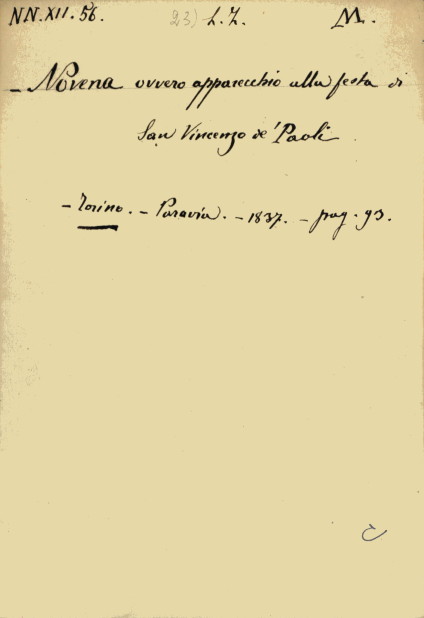 NN.XII.56. 23) L.Z. M.
- Novena ovvero apparecchio alla festa di
San Vincenzo de' Paoli
- Torino. - Paravia. - 1837. - pag. 93.